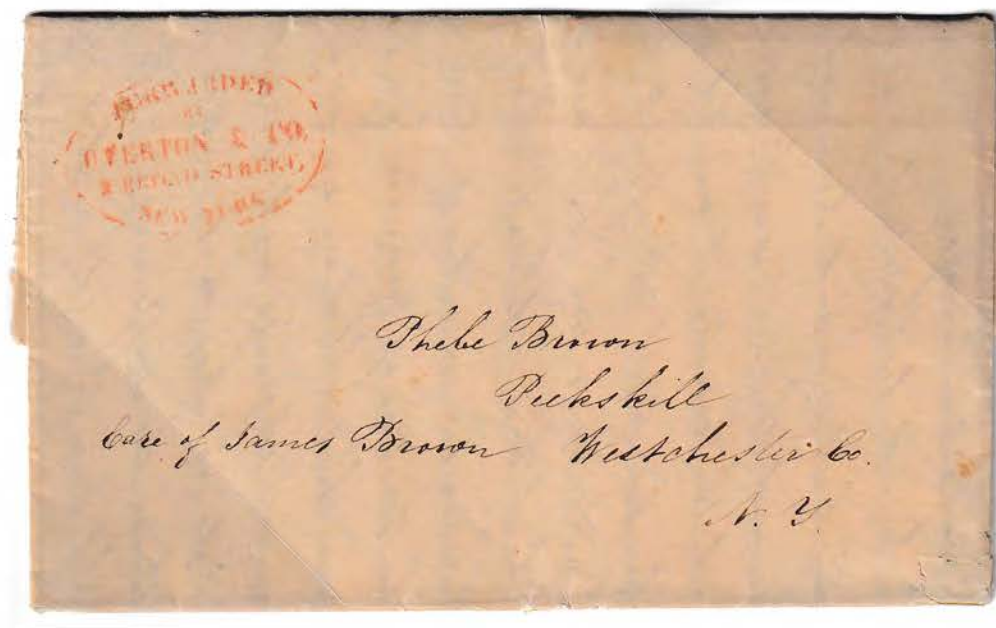 FORWARDED
BY
OVERTON & CO.
BROAD STREET,
NEW YORK
Phebe Brown
Peekskill
Care of James Brown Westchester Co.
N. Y.